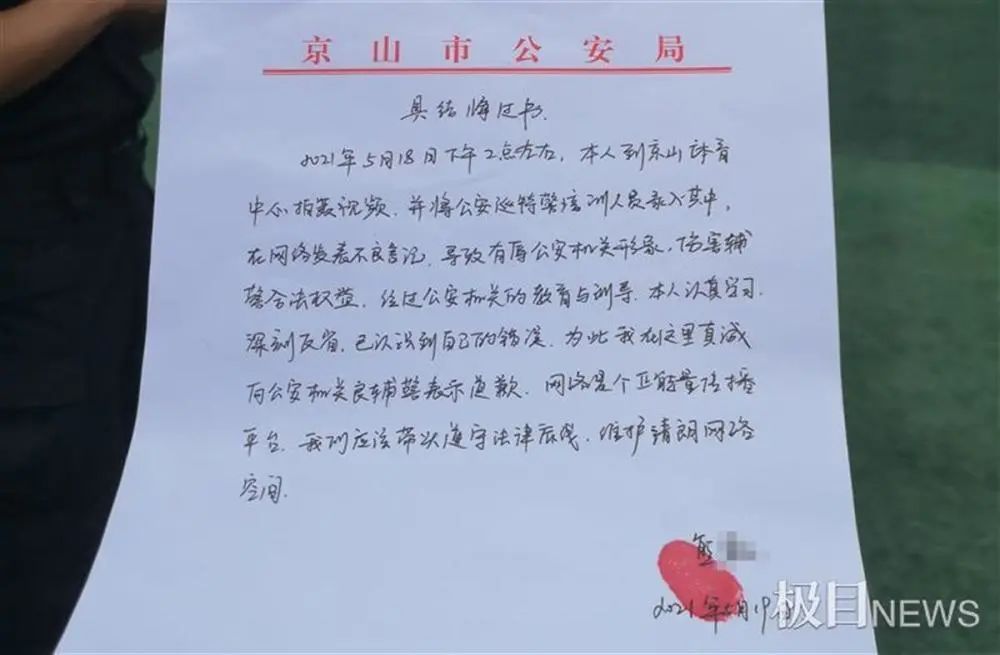 京山市公安局
具结悔过书.
2021年5月18日下午2点左右，本人到京山体育
中心拍摄视频，并将公安巡特警培训人员录入其中，
在网络发表不良言论，导致有辱公安机关形象，伤害辅
警合法权益，经过公安机关的教育与训导，本人认真学习
深刻反省，已认识到自己的错误，为此我在这里真诚
向公安机关及辅警表示道歉，网络是个正能量传播
平台，我们应该带头遵守法律底线，维护清朗网络
空间.
熊
2021年5月19日
极目NEWS